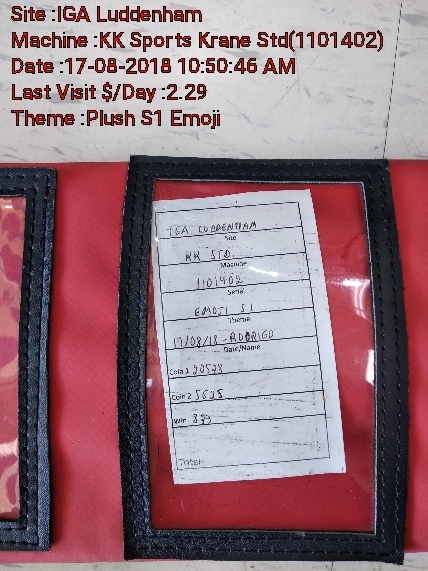 Site :IGA Luddenham
Machine :KK Sports Krane Std(1101402)
Date :17-08-2018 10:50:46 AM
Last Visit $/Day :2.29
Theme :Plush S1 Emoji
IGA LUDDENHAM
Site
KK STD.
Machine
1101402
Serial
EMOJI S1
Theme
17/08/18 - RODRIGO
Date/Name
Coin 1 20598
Coin 2 5625
Win 899
Total